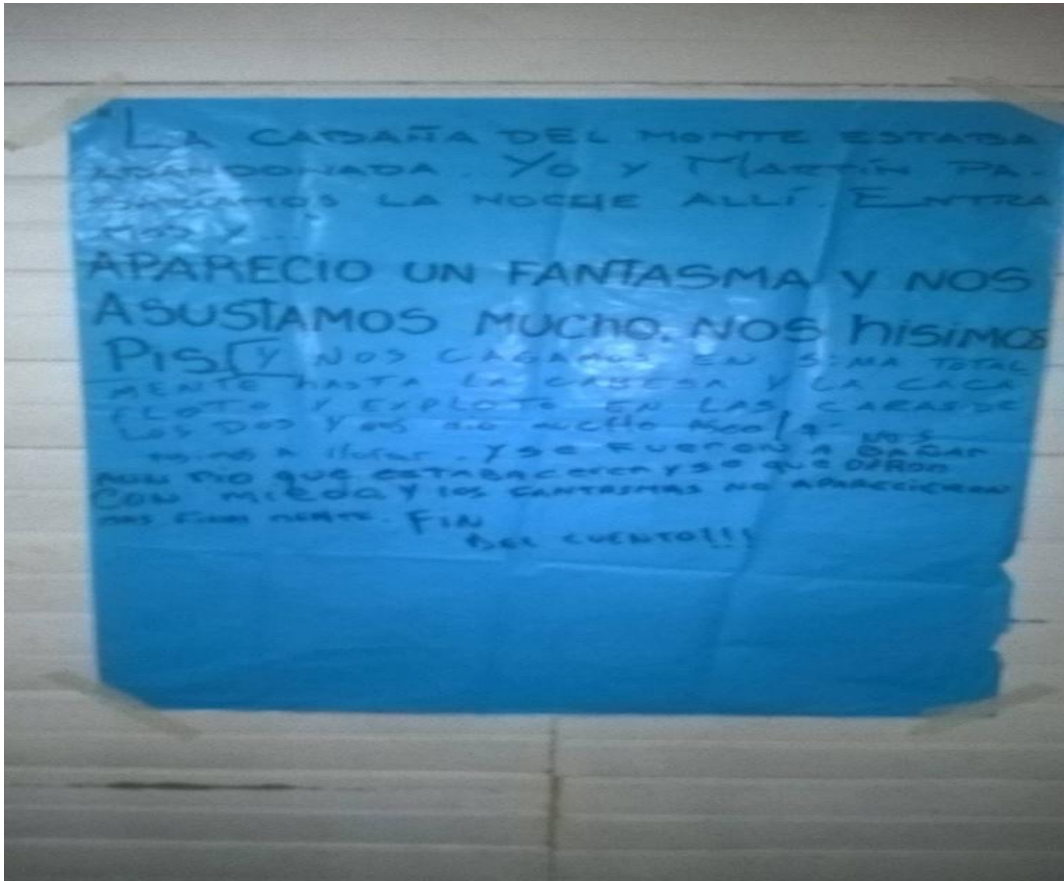 "LA CABAÑA DEL MONTE ESTABA
ABANDONADA. YO Y MARTÍN PA-
SARÍAMOS LA NOCHE ALLÍ. ENTRA
MOS Y...
APARECIO UN FANTASMA Y NOS
ASUSTAMOS MUCHO. NOS hISIMOS
PIS Y NOS CAGAMOS EN SIMA TOTAL
MENTE HASTA LA CABESA Y LA CACA
FLOTO Y EXPLOTO EN LAS CARAS DE
LOS DOS Y NOS DIO MUCHO ASCO
NOS
a llorar. Y SE FUERON A BAÑAR
A UN RIO QUE ESTABA CERCA Y SE QUEDARON
CON MIEDO Y LOS FANTASMAS NO APARECIERON
MAS FINAL MENTE. FIN
DEL CUENTO!!!